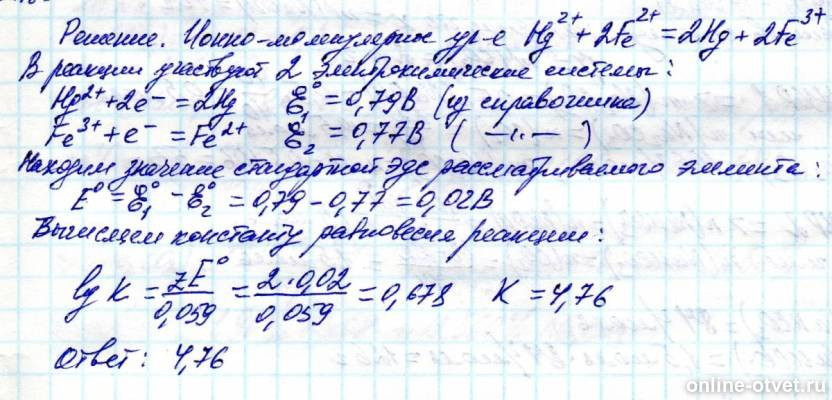 Решение. Ионно-молекулярное ур-е Hg²⁺ + 2Fe²⁺ = 2Hg + 2Fe³⁺
В реакции участвуют 2 электрохимические системы:
Hg²⁺ + 2e⁻ = 2Hg ℰ₁° = 0,79В (из справочника)
Fe³⁺ + e⁻ = Fe²⁺ ℰ₂° = 0,77В ( —"— )
Находим значение стандартной эдс рассматриваемого элемента:
E° = ℰ₁° - ℰ₂° = 0,79 - 0,77 = 0,02В
Вычисляем константу равновесия реакции:
lg K = zE°/0,059 = 2·0,02/0,059 = 0,678 K = 4,76
Ответ: 4,76
online-otvet.ru